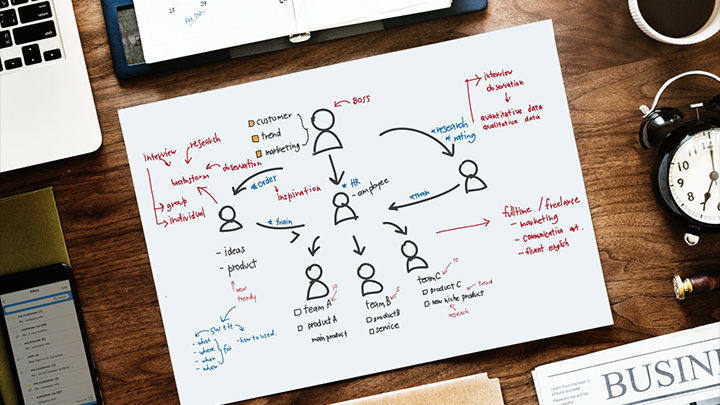 BOSS
customer
trend
marketing
interview
observation
quantitative data
qualitative data
*research
*rating
Interview
research
brainstorm
observation
group
individual
*order
inspiration
*HR
-employee
*train
*train
- ideas
- product
new
trendy
fulltime / freelance
- marketing
- communication art.
- fluent english
5W1H
- what
- where
- when
- who
for
- how to used.
team A
10
product A
main product
team B
5
product B
service
team C
10
product C
trend
new niche product
research
BUSIN
12